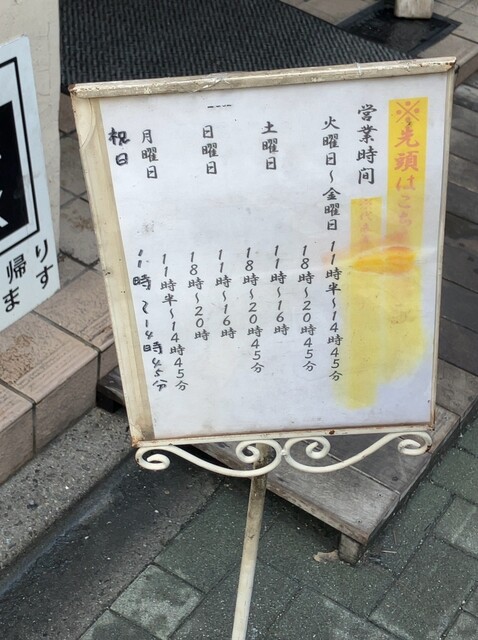 ※先頭はこち
営業時間
火曜日～金曜日 11時半～14時45分
18時～20時45分
土曜日 11時～16時
18時～20時45分
日曜日 11時～16時
18時～20時
月曜日 11時半～14時45分
祝日 11時～14時45分
帰り
ます